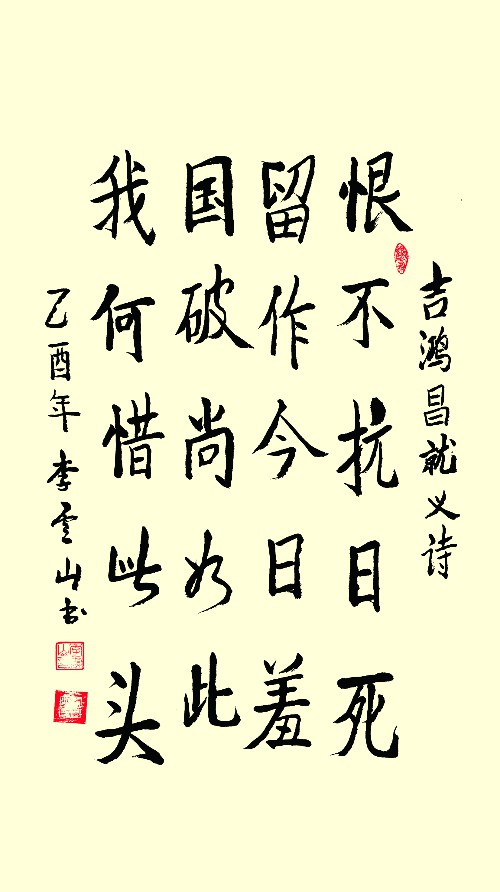 吉鸿昌就义诗
恨不抗日死
留作今日羞
国破尚如此
我何惜此头
乙酉年 李云山书